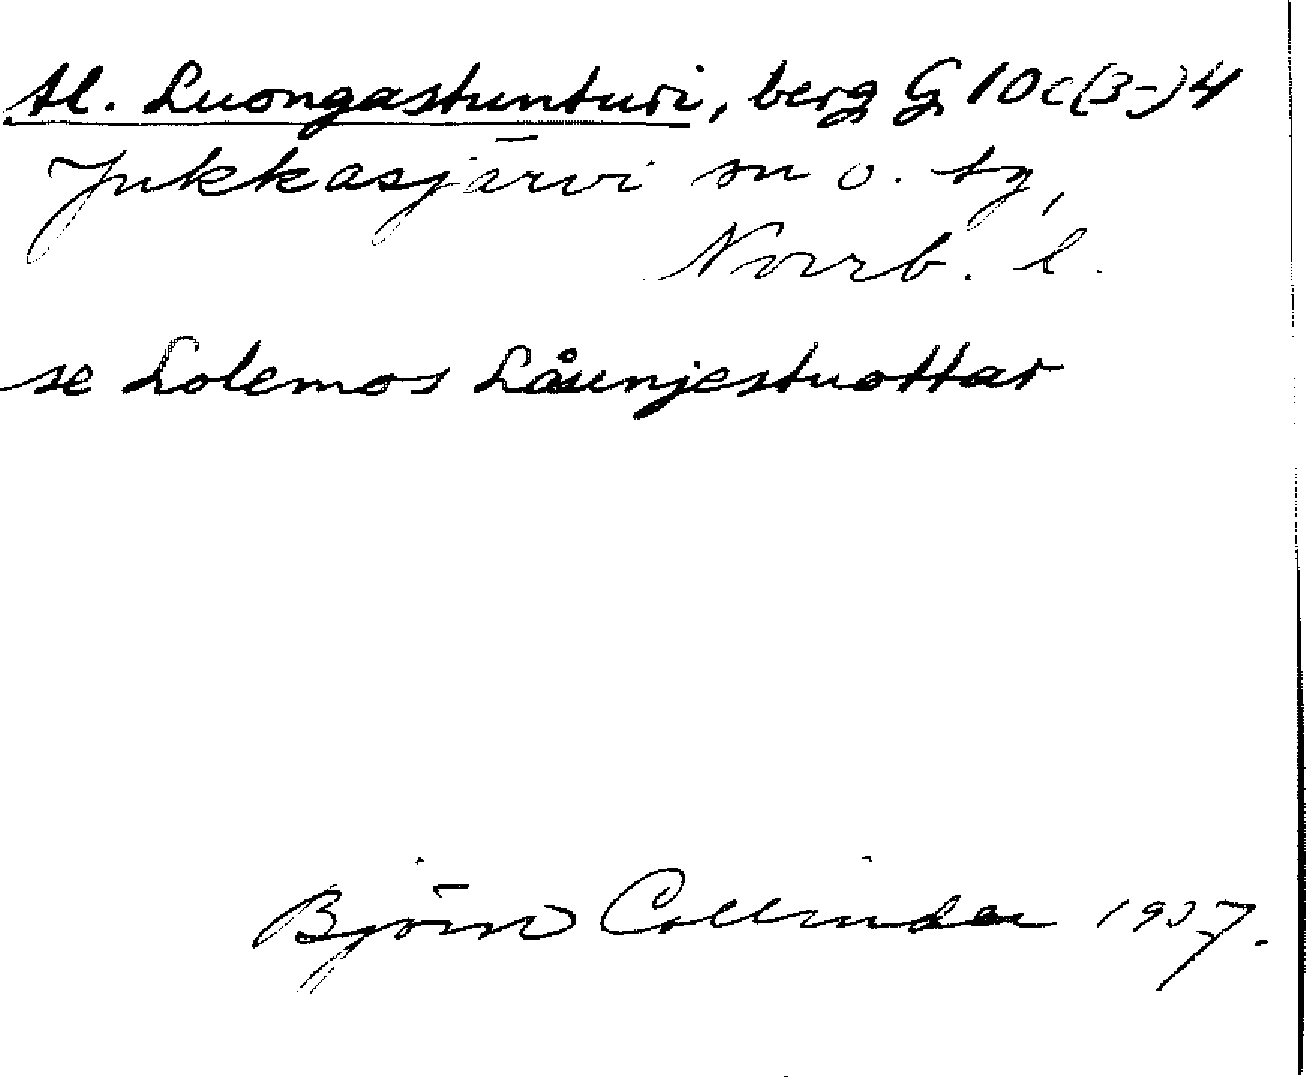 tl. Luongastunturi, berg G 10 c (3-) 4
Jukkasjärvi sn o. tg,
Norrb. l.
se Lolemos Låunjestuottar
Björn Collinder 1937.